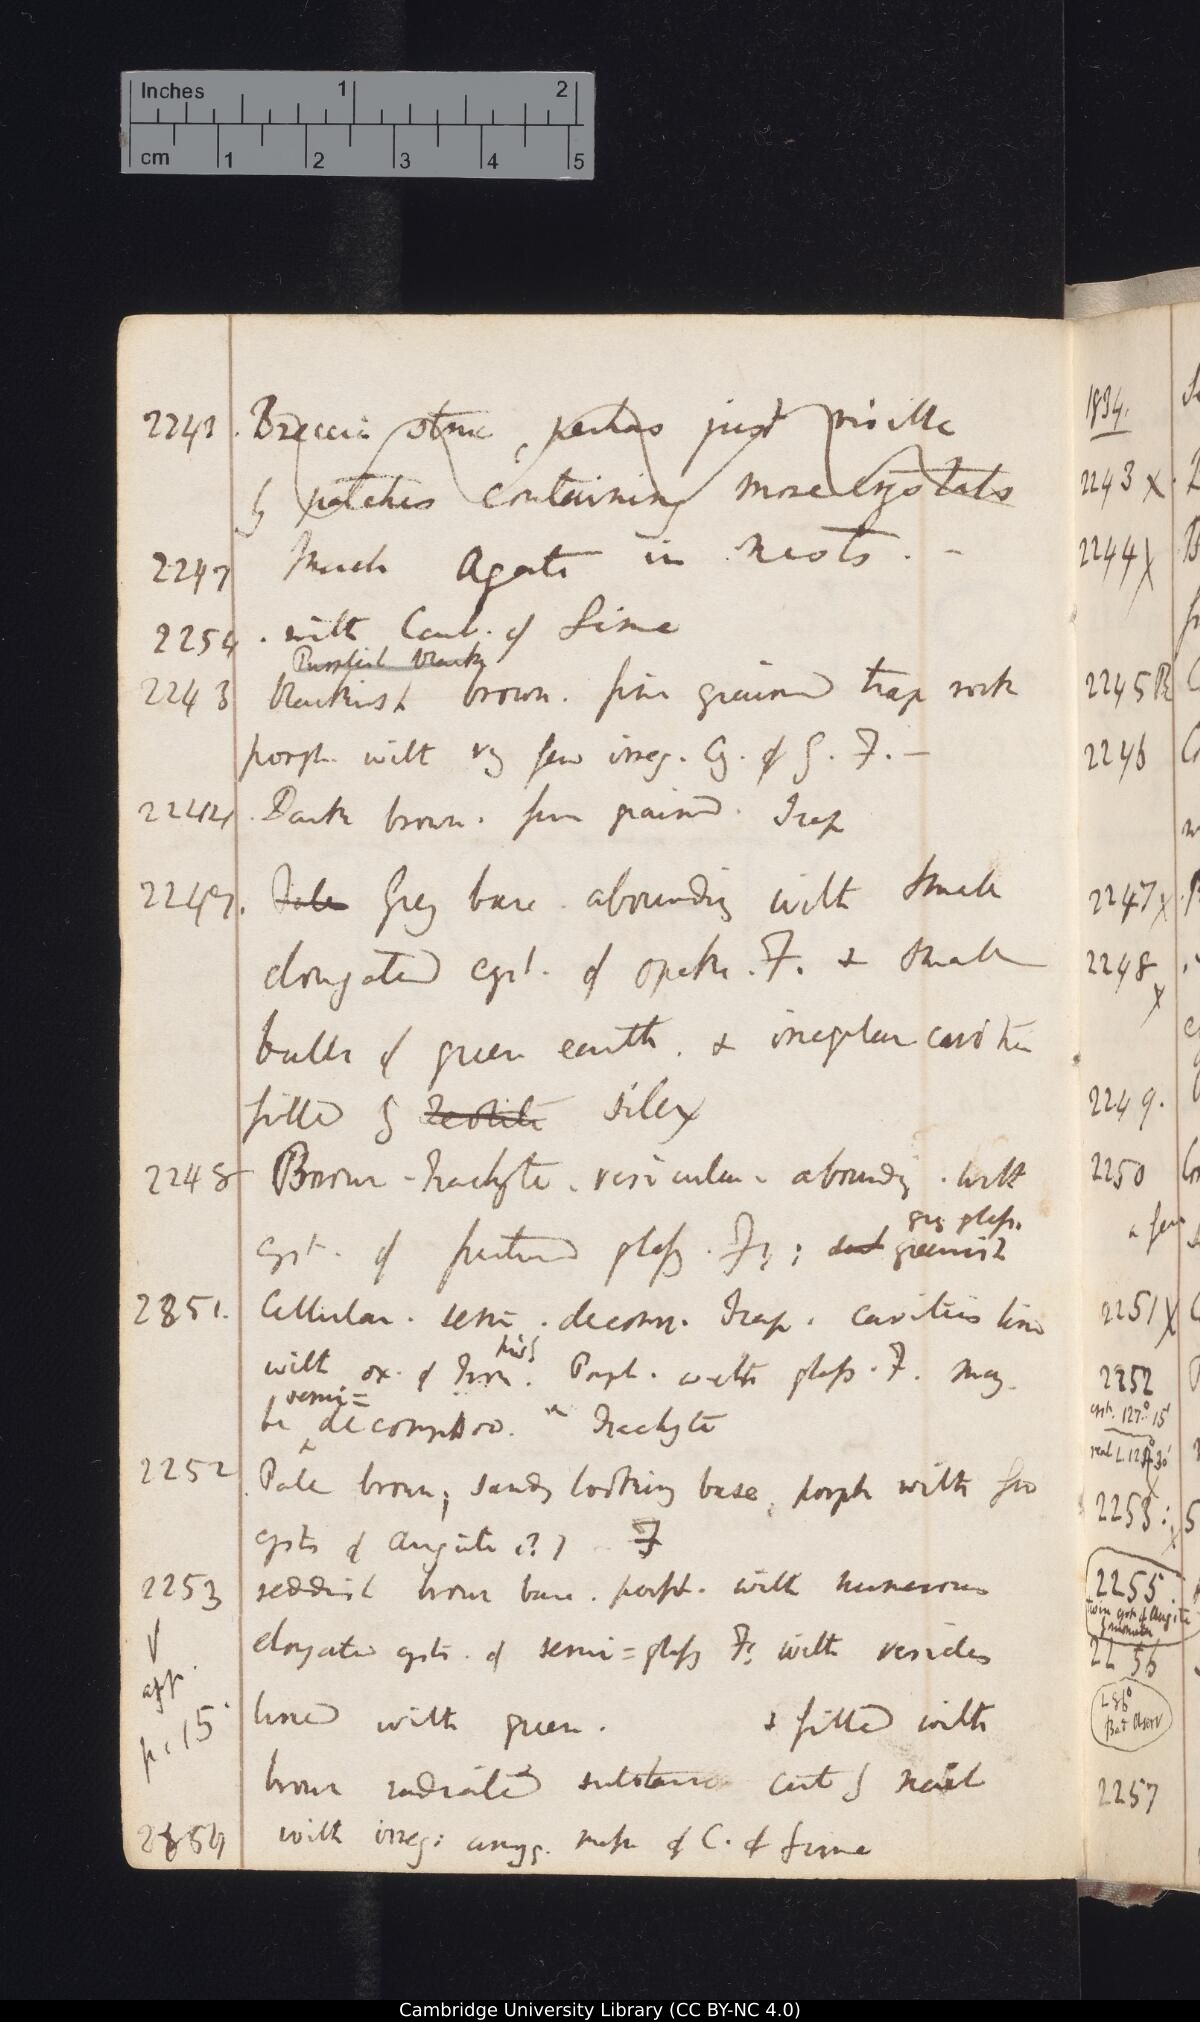 Inches 1 2
cm 1 2 3 4 5
2243 Breccia stone, perhaps just visible
by patches containing more crystals
2247 Much Agate in knots. —
2254 . with Carb. of Lime
Purplish black
2243 blackish brown. fine grained trap rock
porph. with very few irreg. Cry. of G. F. —
2244. Dark brown. fine grained. Trap
2247. Pale Grey base abounding with small
elongated cryst. of opake. F. & small
balls of green earth. & irregular cavities
filled by Zeolite silex
2248 Brown Trachyte. vesicular. abounding. with
gry glass.
cryst. of fractured glass. F?; and greenish
2251. Cellular. semi. decomp. Trap. cavities lined
with ox. of Iron. Porph. with glass. F. may
semi=
be decompos. Trachyte
2252 Pale brown; sandy looking base, porph with few
crysts of Augite (?) F
2253 reddish brown base. porph. with numerous
elongated crysts. of semi=glass F? with vesicles
V
app.
p. 15 lined with green. & filled with
brown radiated substance cut by nail
2254 with irreg: amyg. mass of C. of Lime
1834.
2243 X
2244 X
2245 R
2246
2247 X
2248 X
2249.
2250
a few
2251 X
2252
cryst. 127° 15'
real L 12
2253: X
2255
twin cryst of Augite
2256
L 86°
Bad observ
2257
Cambridge University Library (CC BY-NC 4.0)